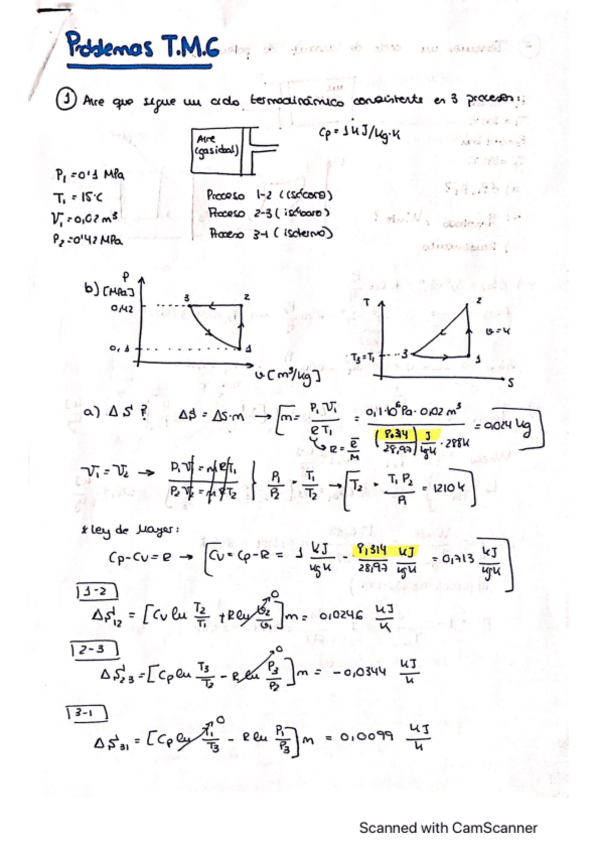 Problemas T.M.6
① Aire que sigue un ciclo termodinámico consistente en 3 procesos:
Aire
(gas ideal)
Cp = 1 kJ/kg·K
P₁ = 0'1 MPa
T₁ = 15ºC
V₁ = 0,02 m³
P₂ = 0'42 MPa
Proceso 1-2 (isócoro)
Proceso 2-3 (isóbaro)
Proceso 3-1 (isotermo)
b)
P
[MPa]
0,42
0,1
3
2
1
v [m³/kg]
T
2
T₃=T₁
3
1
S
a) ΔS ? ΔS = Δs·m → [m = P₁V₁ / RT₁ = 0,1·10⁶Pa·0,02 m³ / (8,314/28,97) J/kgK · 288K = 0,024 kg]
R = R̄/M
V₁ = V₂ → P₁V = mRT₁ / P₂V = mRT₂ } P₁/P₂ = T₁/T₂ → [T₂ = T₁P₂/P₁ = 1210K]
* Ley de Mayer:
Cp-Cv = R → [Cv = Cp-R = 1 kJ/kgK - 8,314/28,97 kJ/kgK = 0,713 kJ/kgK]
1-2
ΔS₁₂ = [Cv ln T₂/T₁ + R ln v₂/v₁ ↗0] m = 0,0246 kJ/K
2-3
ΔS₂₃ = [Cp ln T₃/T₂ - R ln P₃/P₂ ↗0] m = -0,0344 kJ/K
3-1
ΔS₃₁ = [Cp ln T₁/T₃ ↗0 - R ln P₁/P₃] m = 0,0099 kJ/K
Scanned with CamScanner